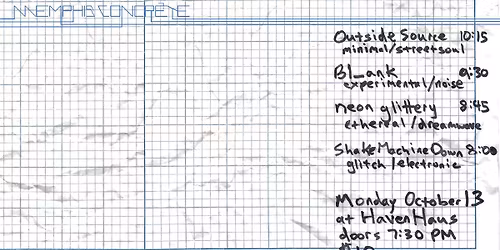 MEMPHIS CONCRETE
Outside Source 10:15
minimal/streetsoul
Bl_ank 9:30
experimental/noise
neon glittery 8:45
ethereal/dreamwave
ShakeMachineDown 8:00
glitch/electronic
Monday October 13
at HavenHaus
doors 7:30 PM